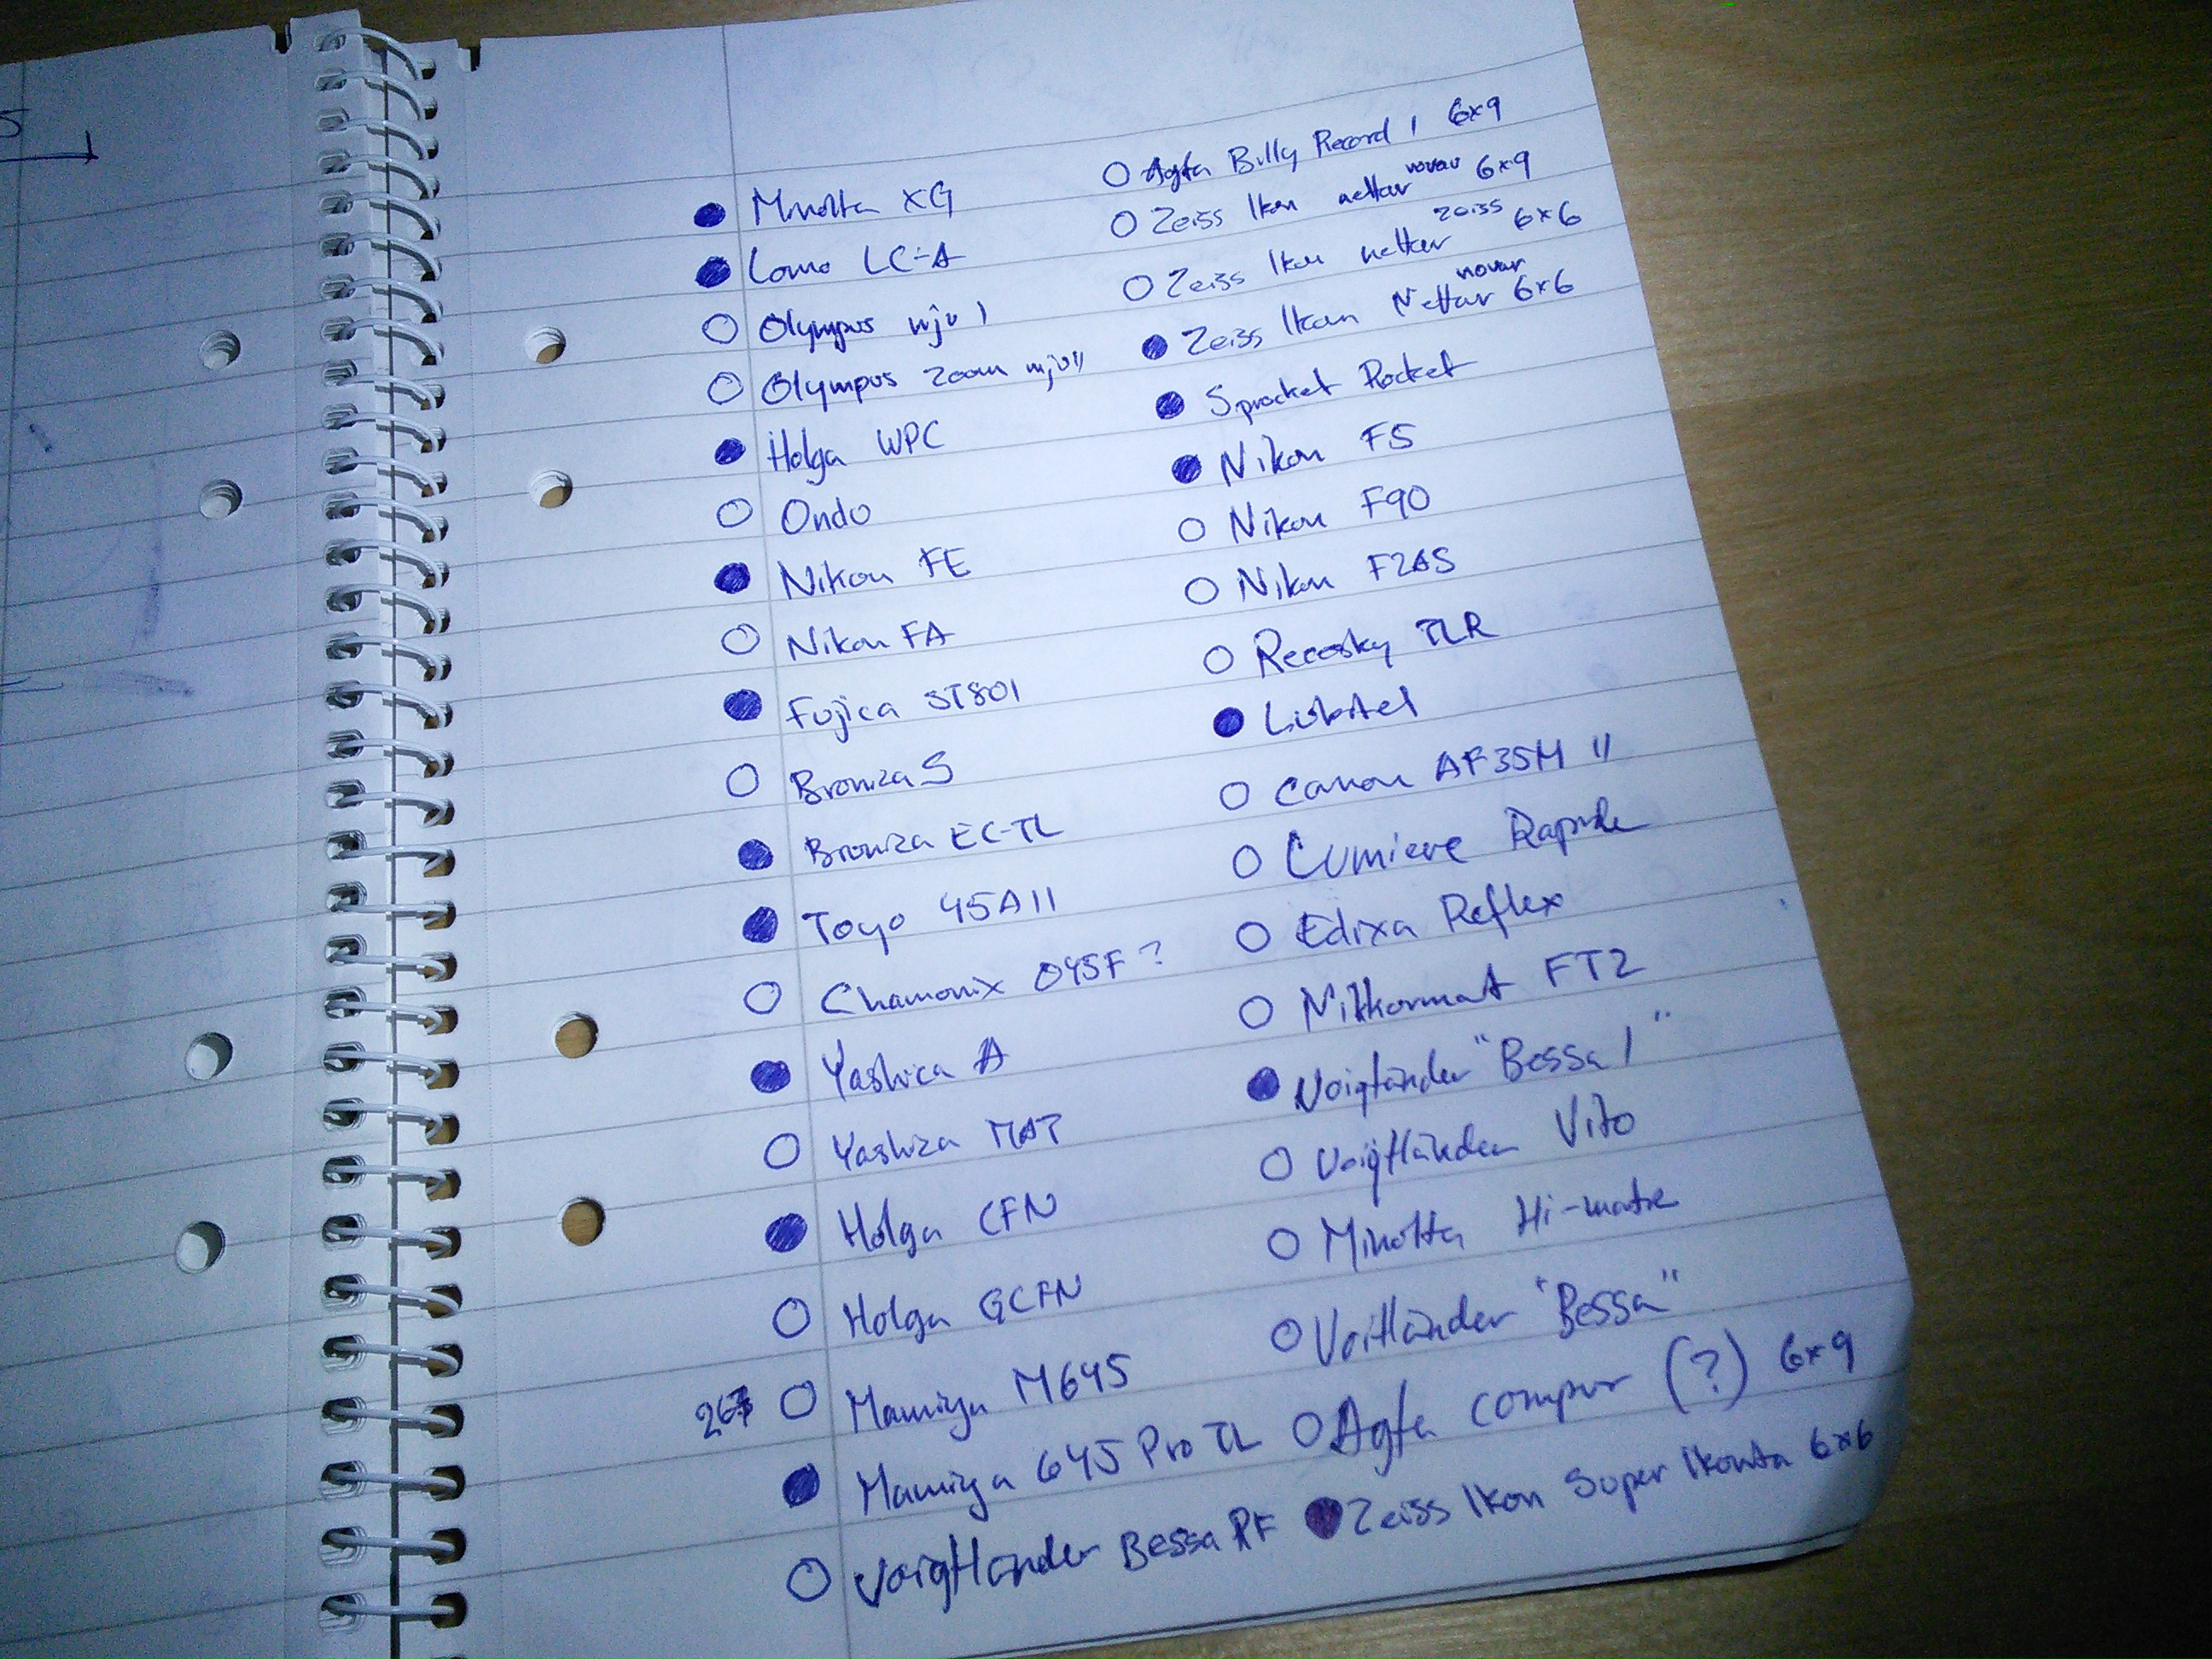 Minolta XG
Lomo LC-A
Olympus mju I
Olympus zoom mju II
Holga WPC
Ondo
Nikon FE
Nikon FA
Fujica ST801
Bronica S
Bronica EC-TL
Toyo 45AII
Chamonix 045F ?
Yashica A
Yashica MAT
Holga CFN
Holga GCFN
Mamiya M645
Mamiya 645 Pro TL
Voigtländer Bessa RF
Agfa Billy Record I 6x9
Zeiss Ikon nettar novar 6x9
Zeiss Ikon nettar zeiss 6x6
Zeiss Ikon Nettar novar 6x6
Sprocket Rocket
Nikon F5
Nikon F90
Nikon F2AS
Recesky TLR
Lubitel
Canon AF35M II
Lumiere
Edixa Reflex
Nikkormat FT2
Voigtländer "Bessa I"
Voigtländer Vito
Minolta Hi-matic
Voitländer "Bessa"
Agfa compur (?) 6x9
Zeiss Ikon Super Ikonta 6x6